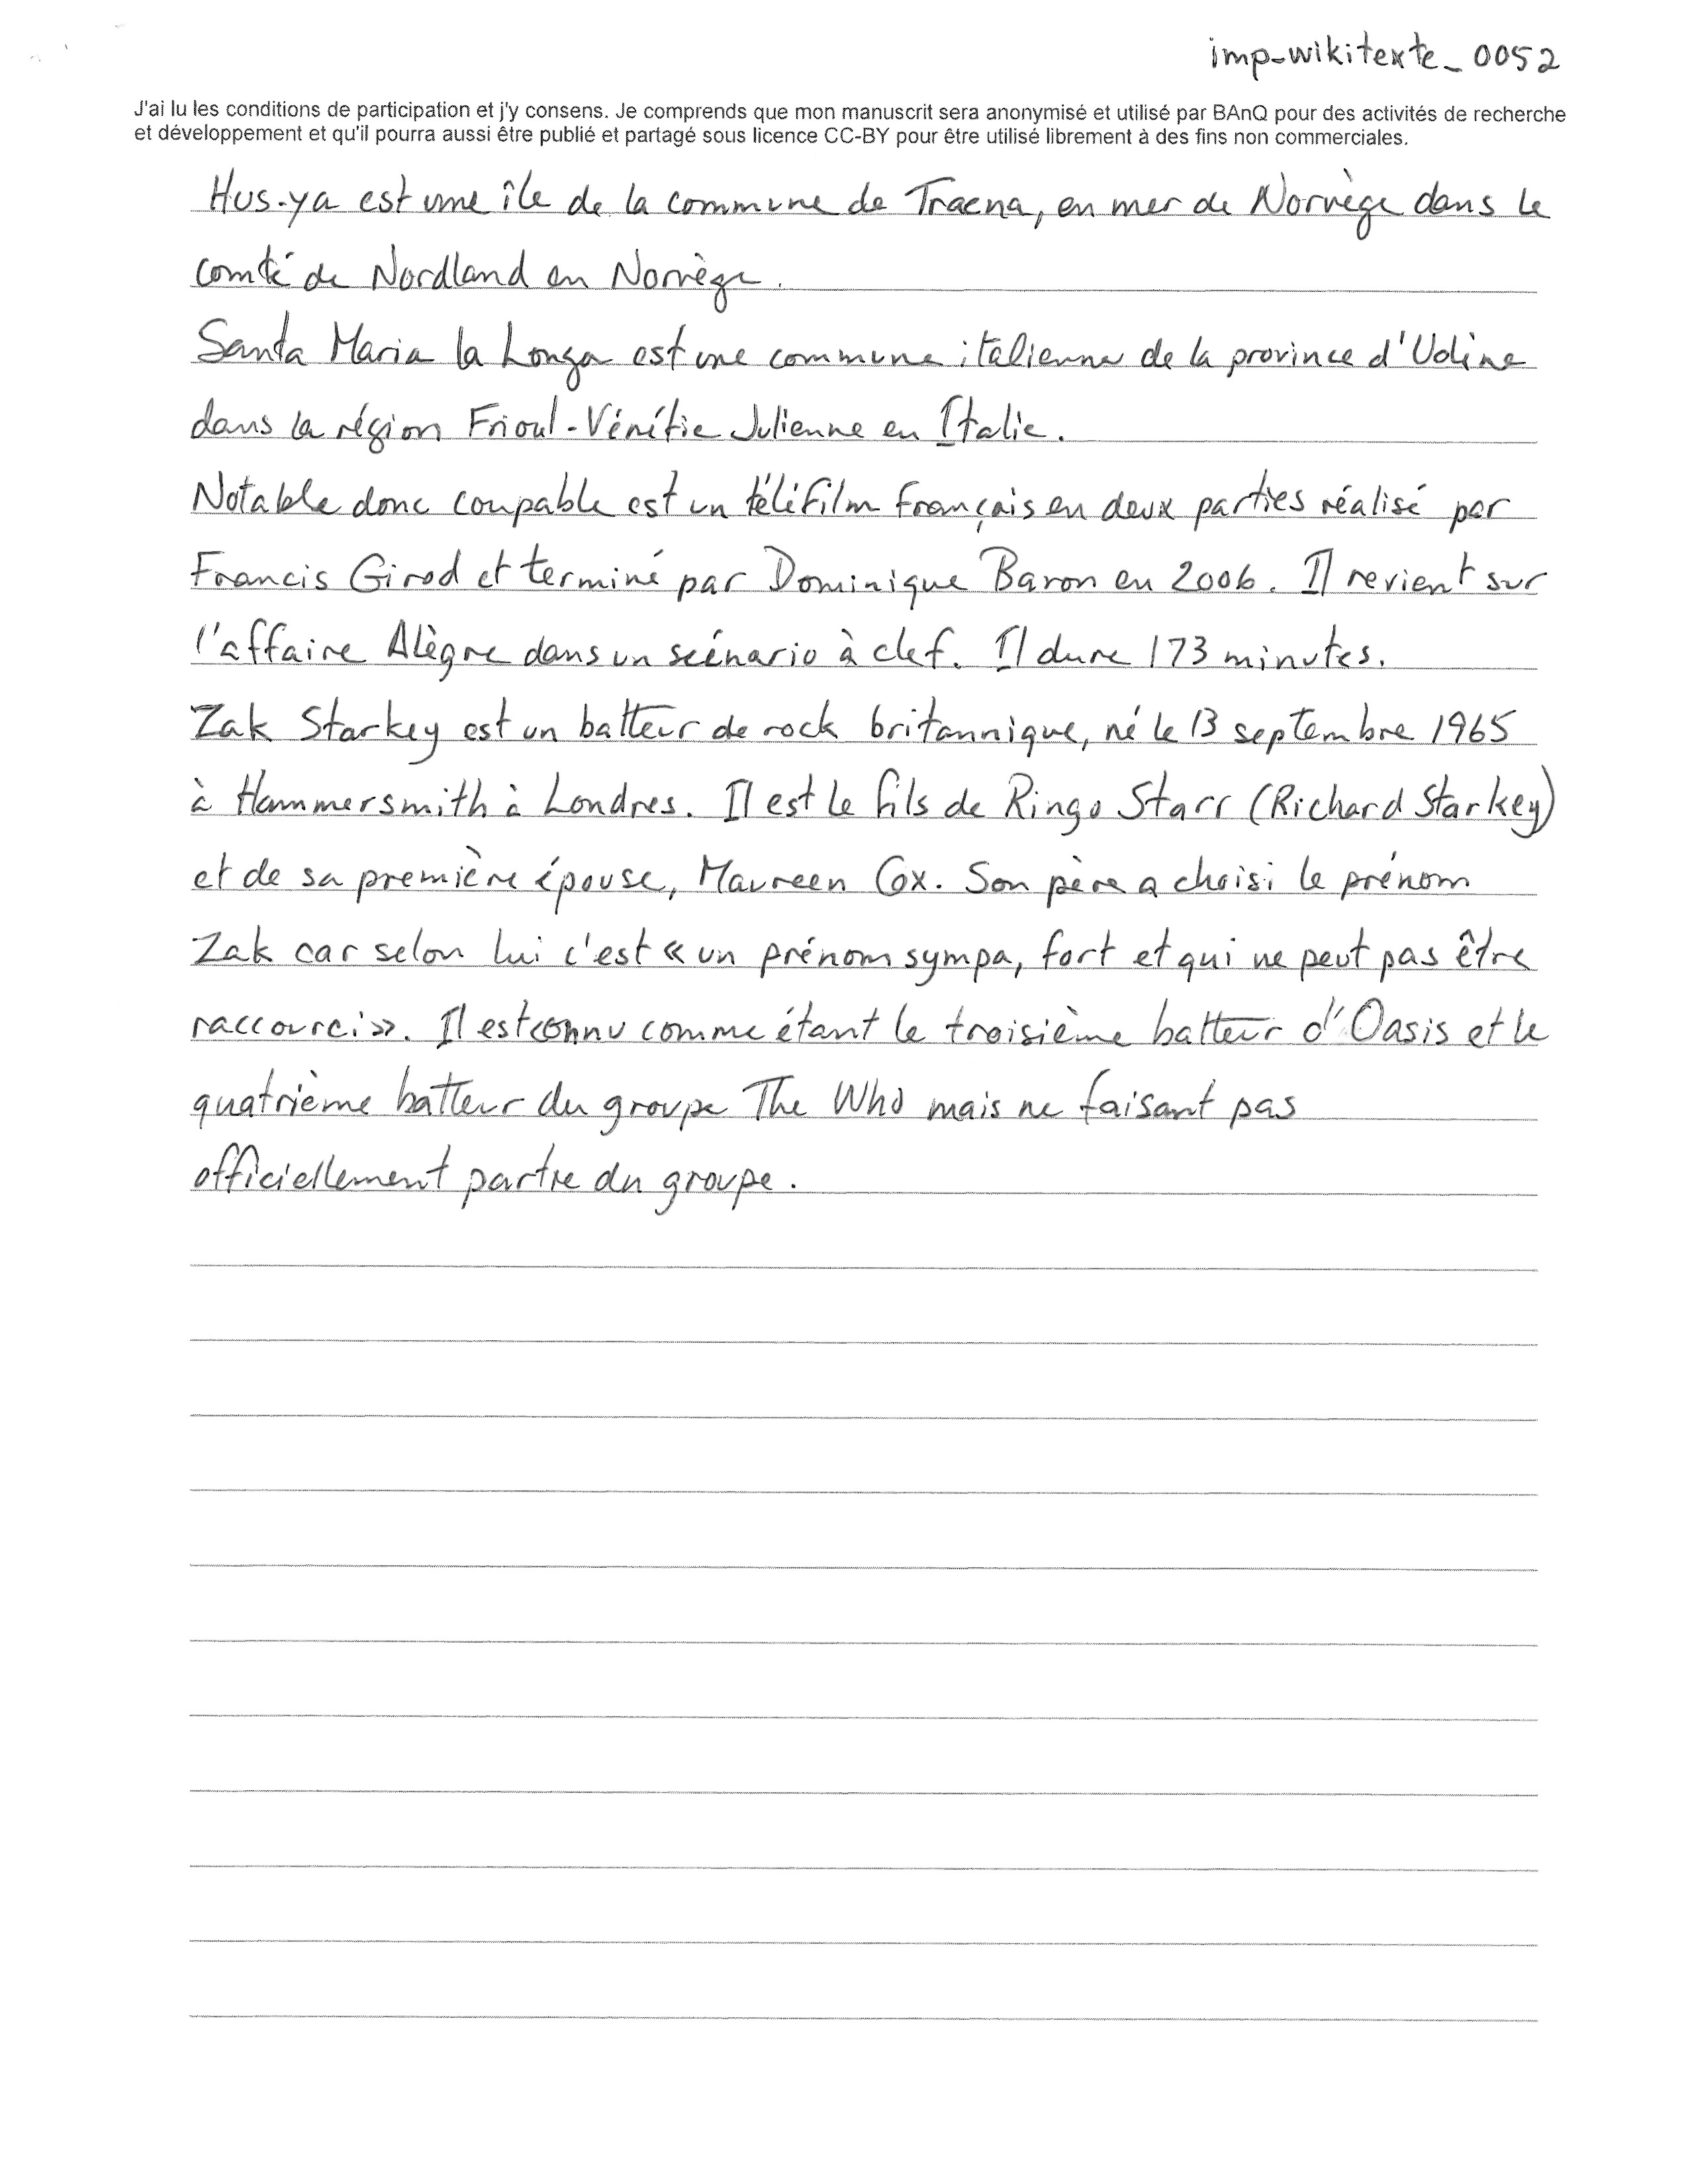 imp-wikitexte_0052
J'ai lu les conditions de participation et j'y consens. Je comprends que mon manuscrit sera anonymisé et utilisé par BAnQ pour des activités de recherche
et développement et qu'il pourra aussi être publié et partagé sous licence CC-BY pour être utilisé librement à des fins non commerciales.
Hus-ya est une île de la commune de Traena, en mer de Norvège dans le
comté de Nordland en Norvège.
Santa Maria la Longa est une commune italienne de la province d'Udine
dans la région Frioul-Vénétie Julienne en Italie.
Notable donc coupable est un téléfilm français en deux parties réalisé par
Francis Girod et terminé par Dominique Baron en 2006. Il revient sur
l'affaire Alègre dans un scénario à clef. Il dure 173 minutes.
Zak Starkey est un batteur de rock britannique, né le 13 septembre 1965
à Hammersmith à Londres. Il est le fils de Ringo Starr (Richard Starkey)
et de sa première épouse, Maureen Cox. Son père a choisi le prénom
Zak car selon lui c'est « un prénom sympa, fort et qui ne peut pas être
raccourci ». Il est connu comme étant le troisième batteur d'Oasis et le
quatrième batteur du groupe The Who mais ne faisant pas
officiellement partie du groupe.